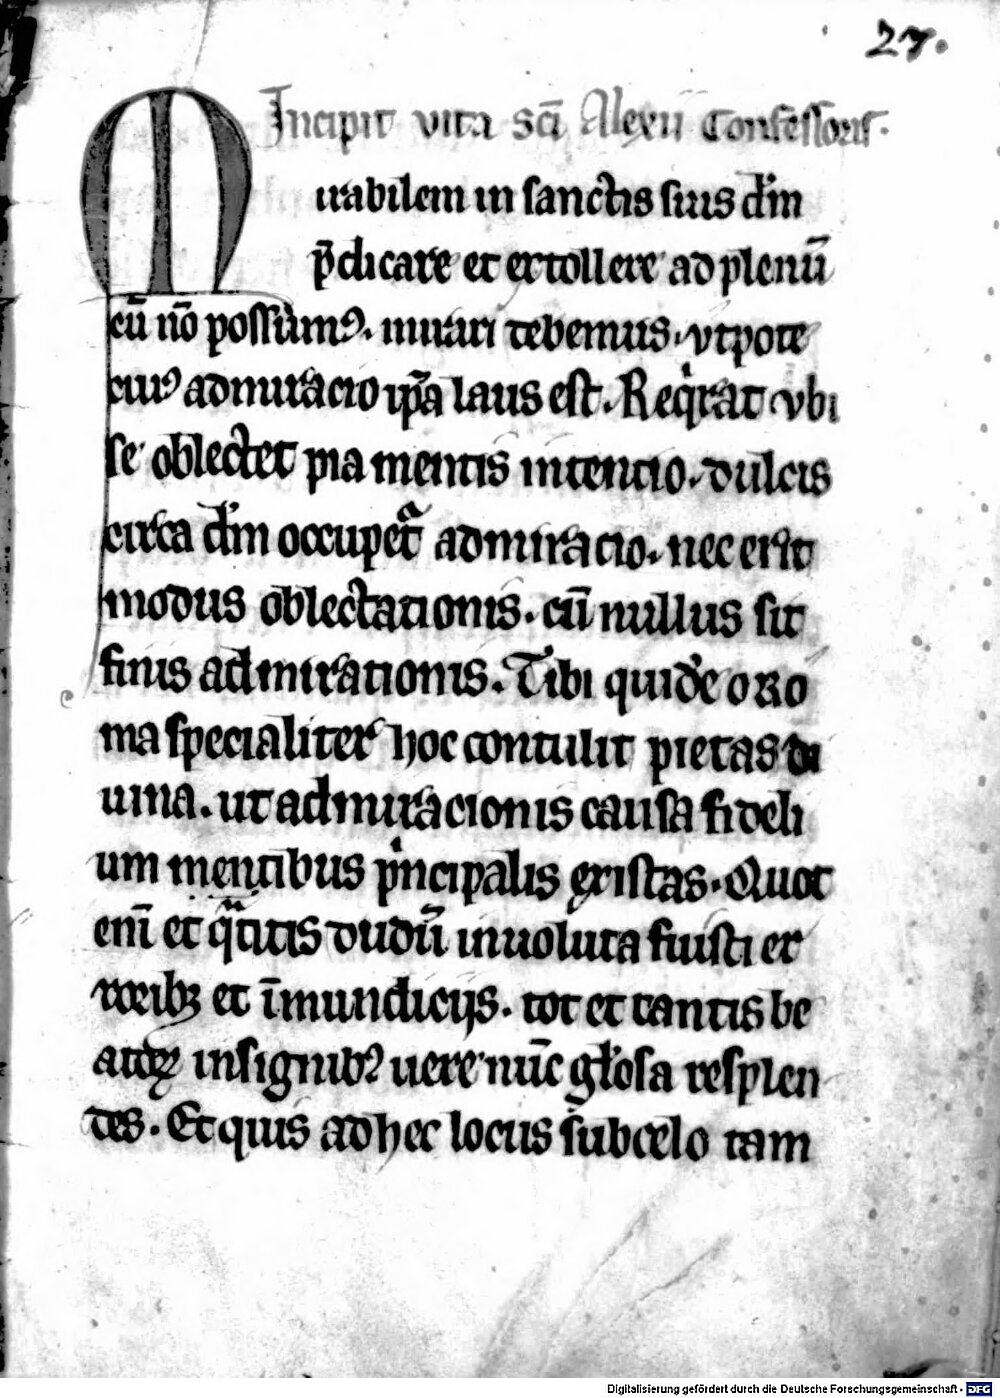 27.
Incipit vita scī Alexii Confessoris.
Mirabilem in sanctis suis dm̄
p̄dicare et extollere ad plenū
cū nō possumꝰ. mirari debemus. vtpote
cuiꝰ admiracio ip̄a laus est. Reqͥrat vbi
se oblectet pia mentis intencio. dulcis
circa dm̄ occupetᷓ admiracio. nec erit
modus oblectationis. cū nullus sit
finis admirationis. Tibi quidē o Ro
ma specialiter hoc contulit pietas di
uina. ut admiracionis causa fideli
um mentibus pͥncipalis existas. Quot
enī et qᷓtitis dudū inuoluta fuisti er
roribꝫ et īmundicijs. tot et tantis be
atoꝝ insignibꝰ uere nūc gl̄osa resplen
des. Et quis ad hec locus sub celo tam
Digitalisierung gefördert durch die Deutsche Forschungsgemeinschaft - DFG